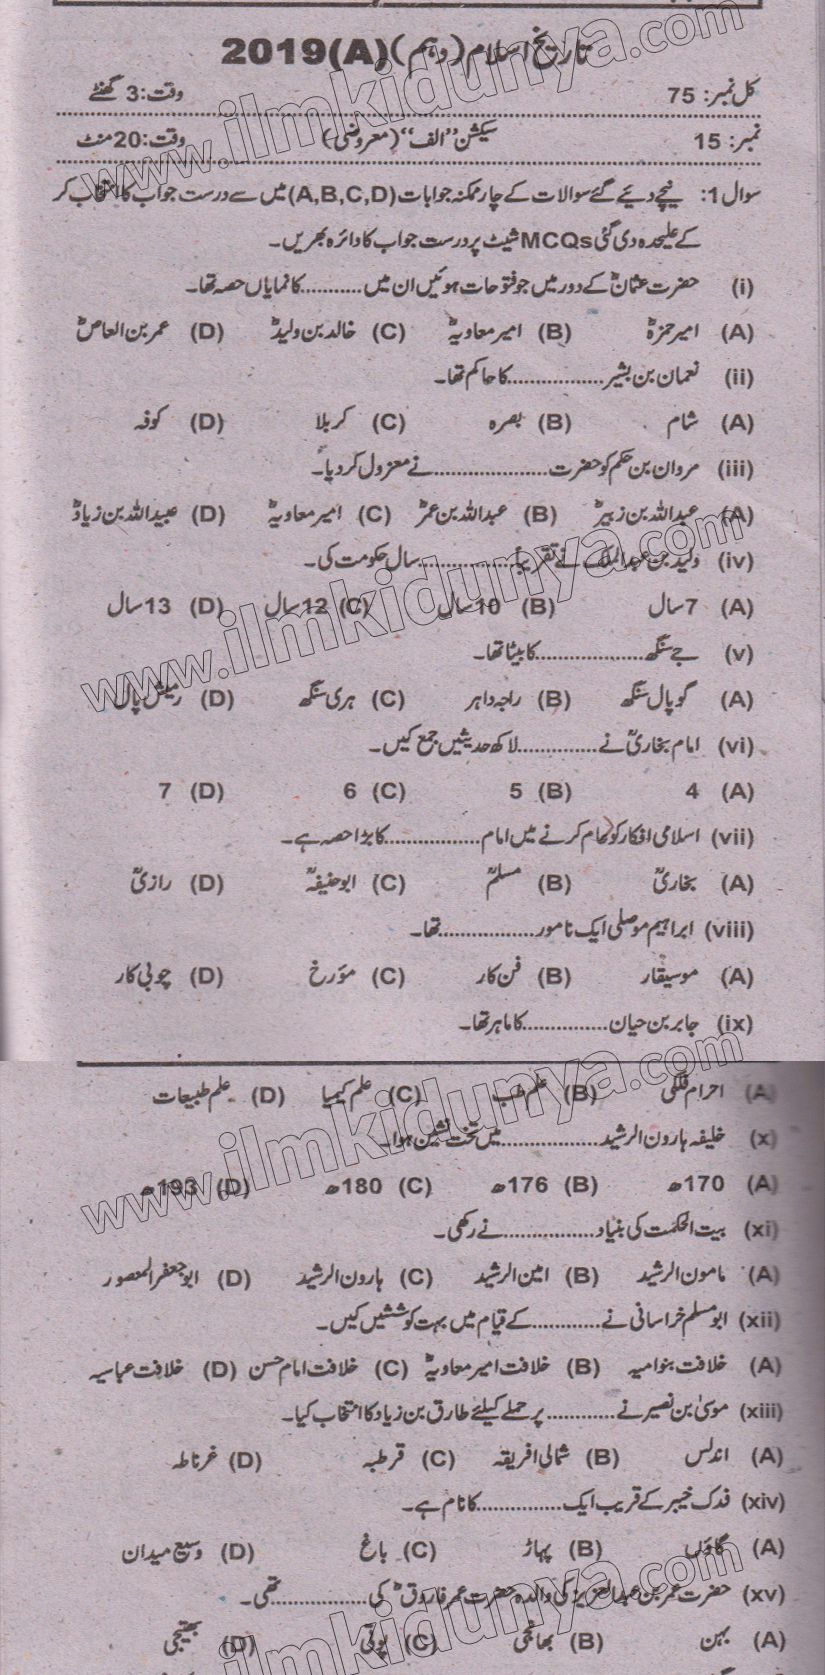 تاریخ اسلام (دہم) (A) 2019
کل نمبر: 75 وقت: 3 گھنٹے
نمبر: 15 سیکشن "الف" (معروضی) وقت: 20 منٹ
سوال 1: نیچے دیئے گئے سوالات کے چار ممکنہ جوابات (A,B,C,D) میں سے درست جواب کا انتخاب کر
کے علیحدہ دی گئی MCQs شیٹ پر درست جواب کا دائرہ بھریں۔
(i) حضرت عثمانؓ کے دور میں جو فتوحات ہوئیں ان میں ........... کا نمایاں حصہ تھا۔
(A) امیر حمزہؓ (B) امیر معاویہؓ (C) خالد بن ولیدؓ (D) عمر بن العاصؓ
(ii) نعمان بن بشیر ................. کا حاکم تھا۔
(A) شام (B) بصرہ (C) کربلا (D) کوفہ
(iii) مروان بن حکم کو حضرت .................... نے معزول کر دیا۔
(A) عبداللہ بن زبیرؓ (B) عبداللہ بن عمرؓ (C) امیر معاویہؓ (D) عبید اللہ بن زیادؓ
(iv) ولید بن عبدالملک نے تقریباً ................. سال حکومت کی۔
(A) 7 سال (B) 10 سال (C) 12 سال (D) 13 سال
(v) جے سنگھ ................... کا بیٹا تھا۔
(A) گوپال سنگھ (B) راجہ داہر (C) ہری سنگھ (D) رمیش پال
(vi) امام بخاریؒ نے .............. لاکھ حدیثیں جمع کیں۔
(A) 4 (B) 5 (C) 6 (D) 7
(vii) اسلامی افکار کو عام کرنے میں امام ................. کا بڑا حصہ ہے۔
(A) بخاریؒ (B) مسلمؒ (C) ابو حنیفہؒ (D) رازیؒ
(viii) ابراہیم موصلی ایک نامور ................. تھا۔
(A) موسیقار (B) فن کار (C) مؤرخ (D) چوبی کار
(ix) جابر بن حیان ............... کا ماہر تھا۔
(A) اجرام فلکی (B) علم طب (C) علم کیمیا (D) علم طبیعات
(x) خلیفہ ہارون الرشید ................. میں تخت نشین ہوا۔
(A) 170ھ (B) 176ھ (C) 180ھ (D) 193ھ
(xi) بیت الحکمت کی بنیاد ................ نے رکھی۔
(A) مامون الرشید (B) امین الرشید (C) ہارون الرشید (D) ابو جعفر المنصور
(xii) ابو مسلم خراسانی نے ............ کے قیام میں بہت کوششیں کیں۔
(A) خلافت بنو امیہ (B) خلافت امیر معاویہؓ (C) خلافت امام حسن (D) خلافت عباسیہ
(xiii) موسیٰ بن نصیر نے ............ پر حملے کیلئے طارق بن زیاد کا انتخاب کیا۔
(A) اندلس (B) شمالی افریقہ (C) قرطبہ (D) غرناطہ
(xiv) فدک خیبر کے قریب ایک ............... کا نام ہے۔
(A) گاؤں (B) پہاڑ (C) باغ (D) وسیع میدان
(xv) حضرت عمر بن عبدالعزیزؒ کی والدہ حضرت عمر فاروقؓ کی ................. تھی۔
(A) بہن (B) بھانجی (C) پوتی (D) بھتیجی
www.ilmkidunya.com
www.ilmkidunya.com
www.ilmkidunya.com
www.ilmkidunya.com